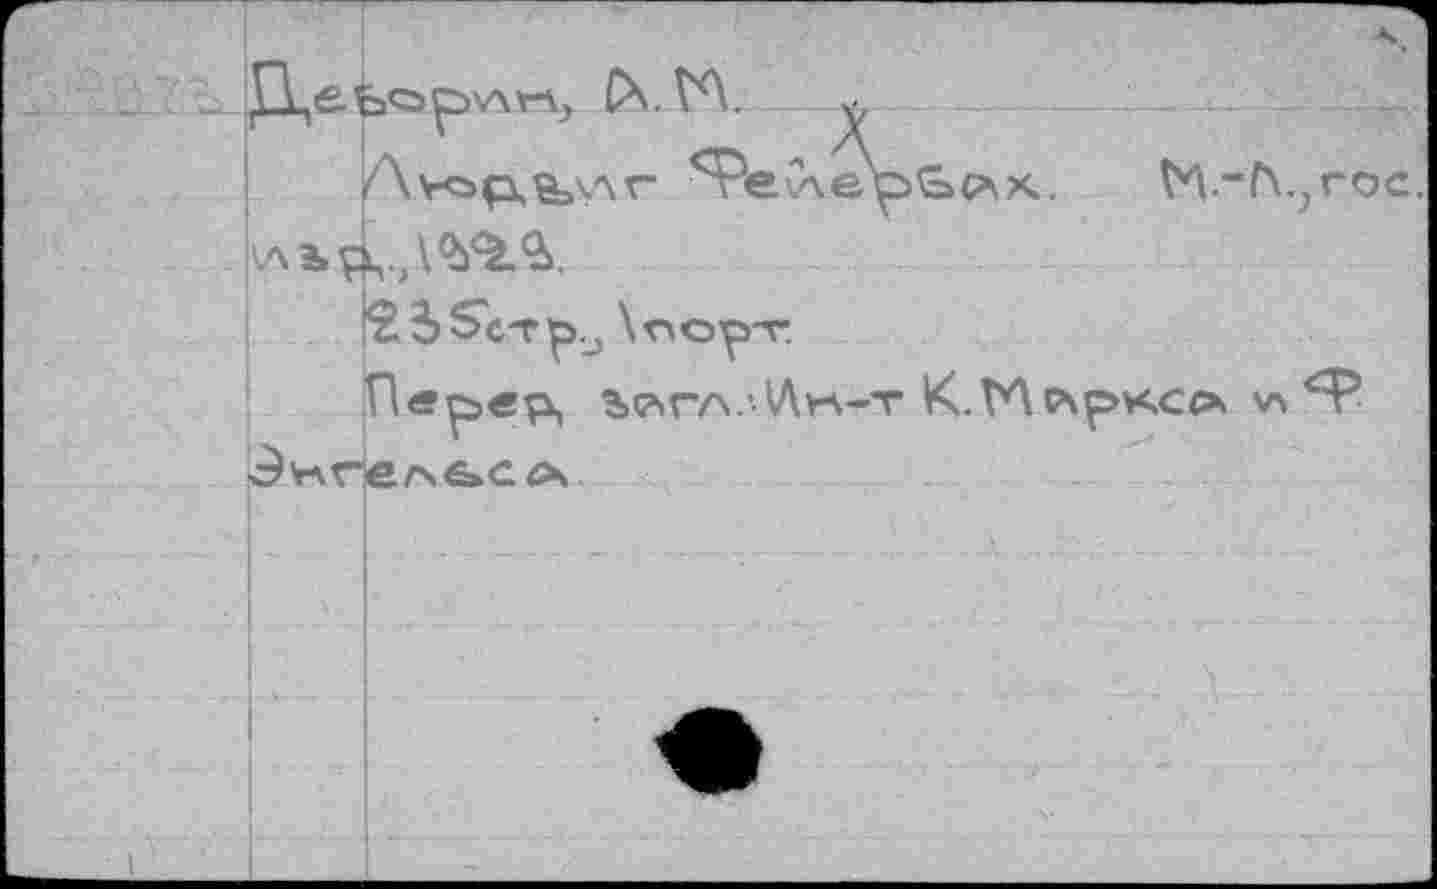 Деборин, А.М.
Людвиг Фейербах. М.-Л., гос.
изд., 1929.
235стр., 1порт.
Перед загл.: Ин-т К.Маркса и Ф.
Энгельса